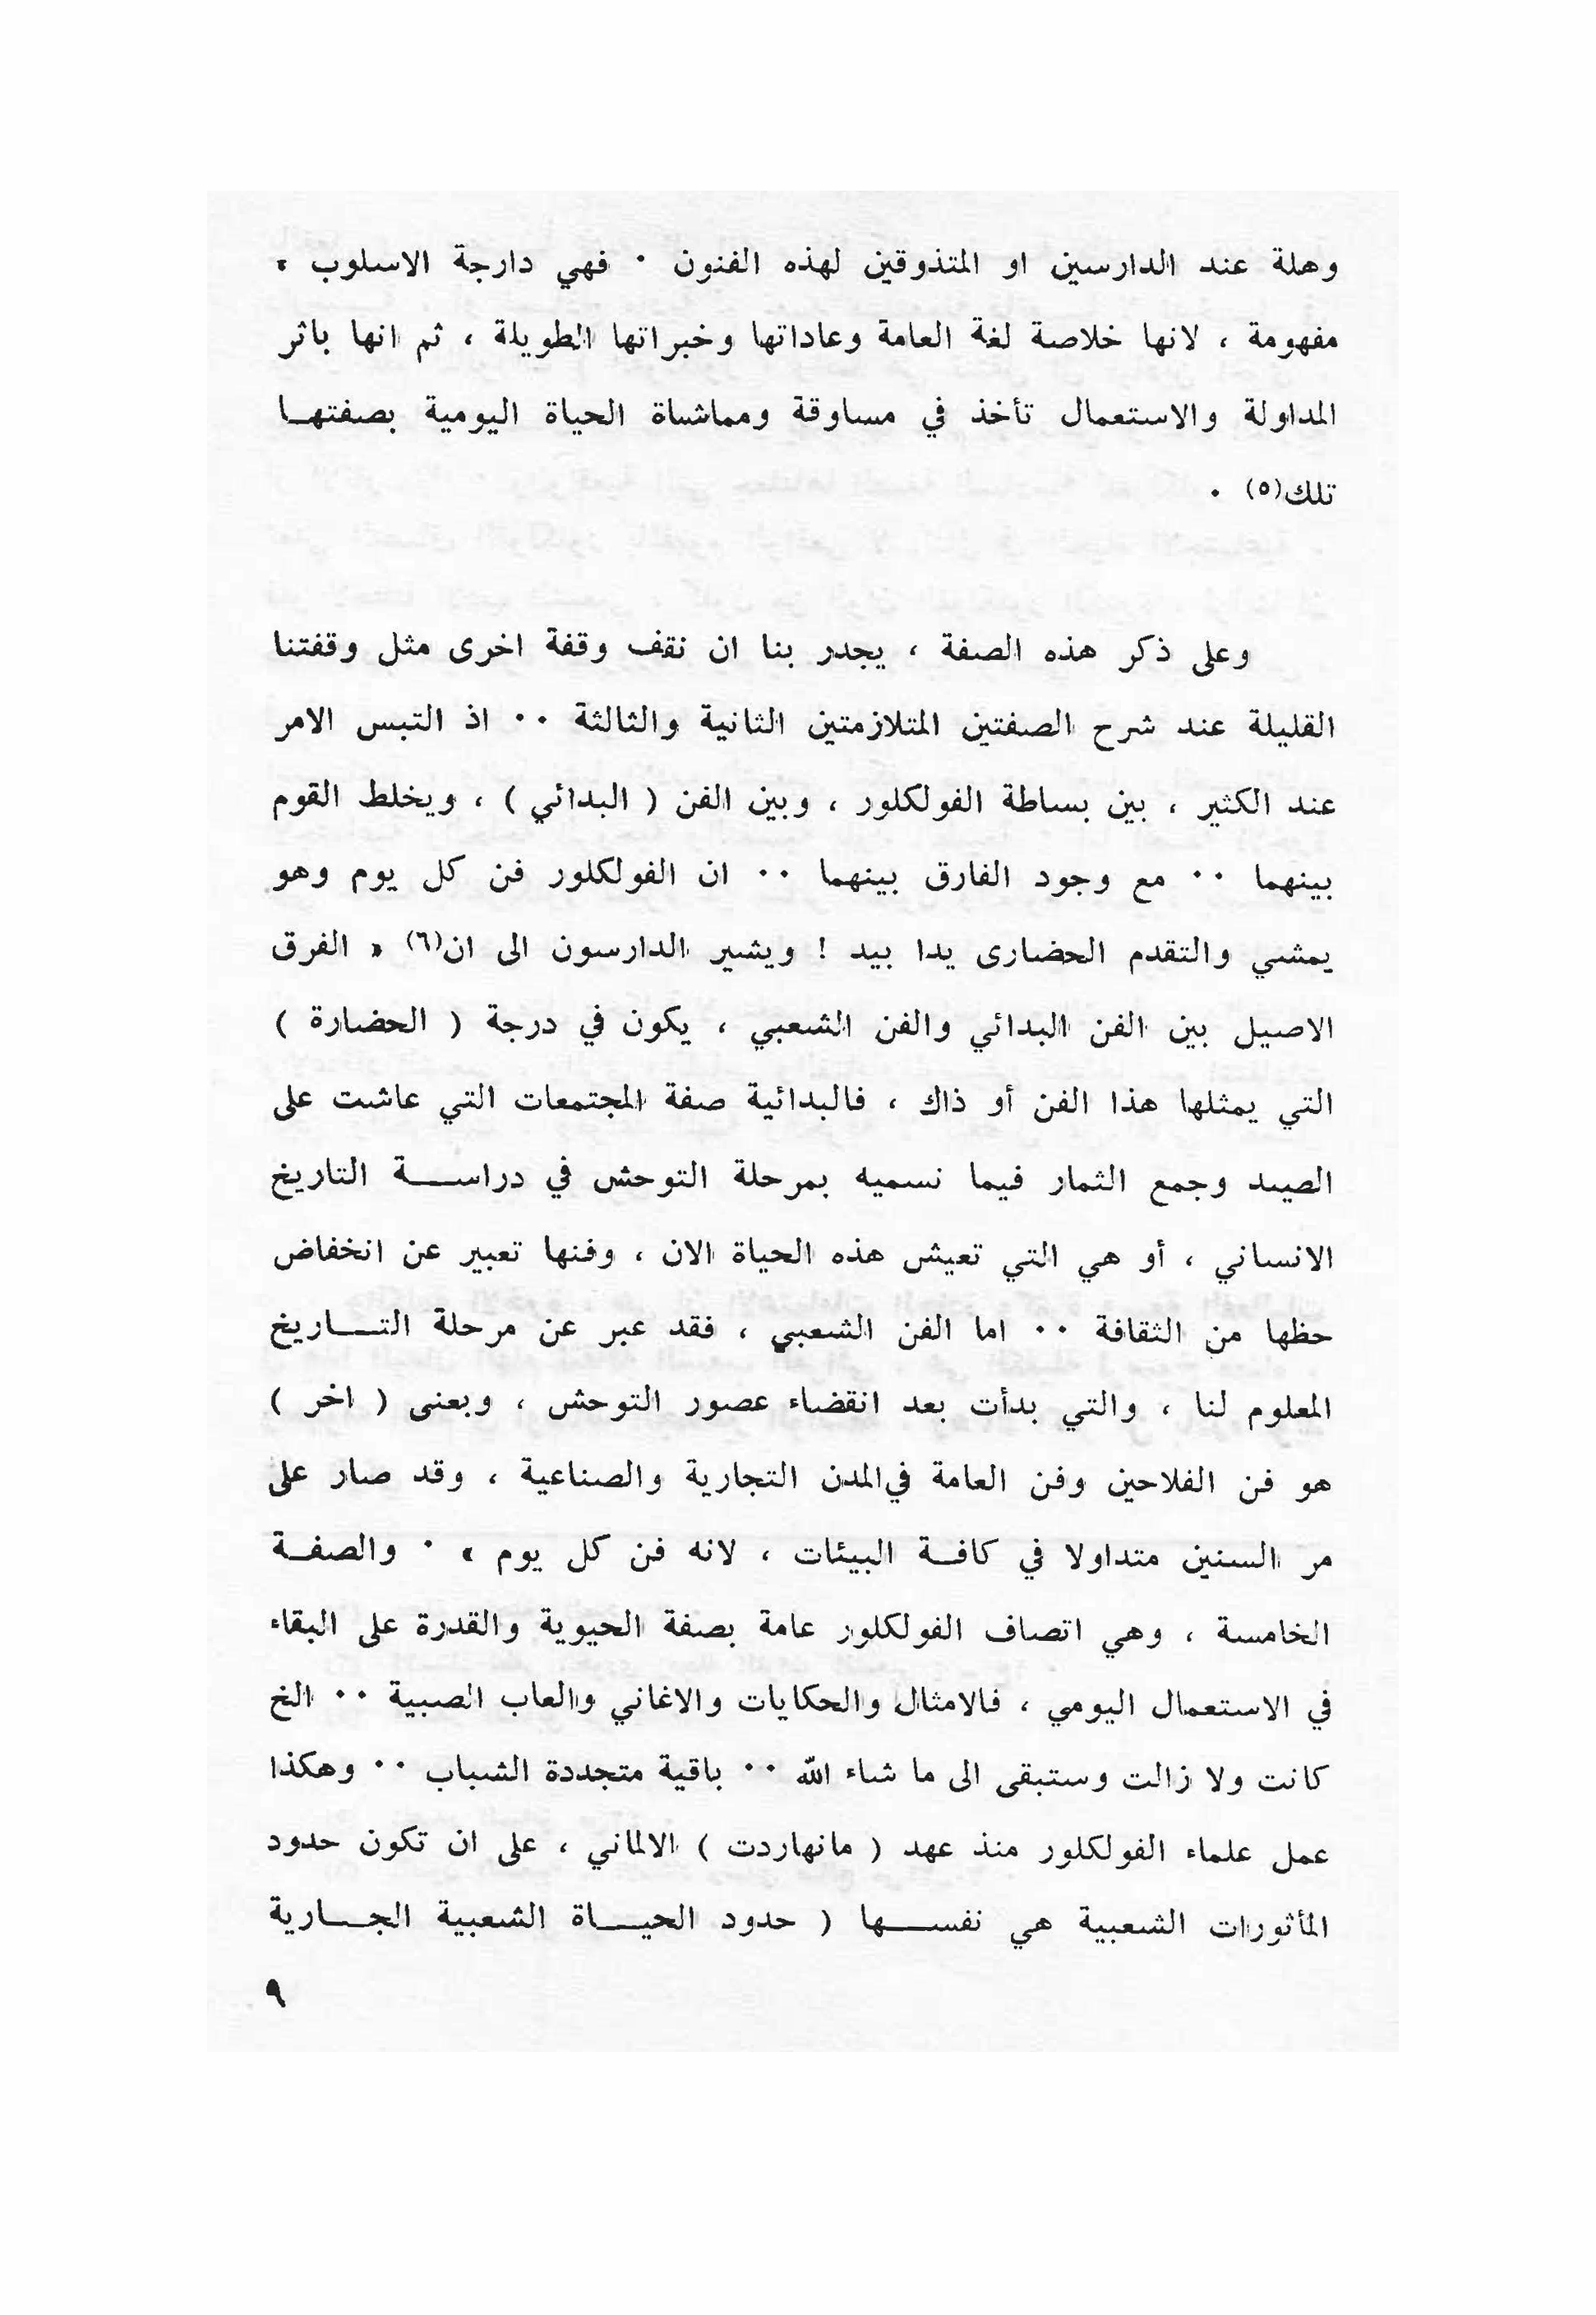 وهلة عند الدارسين او المتذوقين لهذه الفنون ٠ فهي دارجة الاسلوب ،
مفهومة ، لانها خلاصة لغة العامة وعاداتها وخبراتها الطويلة ، ثم انها باثر
المداولة والاستعمال تأخذ في مساوقة ومماشاة الحياة اليومية بصفتهـا
تلك(٥) ٠
وعلى ذكر هذه الصفة ، يجدر بنا ان نقف وقفة اخرى مثل وقفتنا
القليلة عند شرح الصفتين المتلازمتين الثانية والثالثة ٠٠ اذ التبس الامر
عند الكثير ، بين بساطة الفولكلور ، وبين الفن ( البدائي ) ، ويخلط القوم
بينهما ٠٠ مع وجود الفارق بينهما ٠٠ ان الفولكلور فن كل يوم وهو
يمشي والتقدم الحضارى يدا بيد ! ويشير الدارسون الى ان(٦) « الفرق
الاصيل بين الفن البدائي والفن الشعبي ، يكون في درجة ( الحضارة )
التي يمثلها هذا الفن أو ذاك ، فالبدائية صفة المجتمعات التي عاشت على
الصيد وجمع الثمار فيما نسميه بمرحلة التوحش في دراســـة التاريخ
الانساني ، أو هي التي تعيش هذه الحياة الان ، وفنها تعبير عن انخفاض
حظها من الثقافة ٠٠ اما الفن الشعبي ، فقد عبر عن مرحلة التـــاريخ
المعلوم لنا ، والتي بدأت بعد انقضاء عصور التوحش ، وبعنى ( اخر )
هو فن الفلاحين وفن العامة في المدن التجارية والصناعية ، وقد صار على
مر السنين متداولا في كافـة البيئات ، لانه فن كل يوم » ٠ والصفـة
الخامسة ، وهي اتصاف الفولكلور عامة بصفة الحيوية والقدرة على البقاء
في الاستعمال اليومي ، فالامثال والحكايات والاغاني والعاب الصبية ٠٠ الخ
كانت ولا زالت وستبقى الى ما شاء الله ٠٠ باقية متجددة الشباب ٠٠ وهكذا
عمل علماء الفولكلور منذ عهد ( مانهاردت ) الالماني ، على ان تكون حدود
المأثورات الشعبية هي نفســـها ( حدود الحيـــاة الشعبية الجـــارية
٩